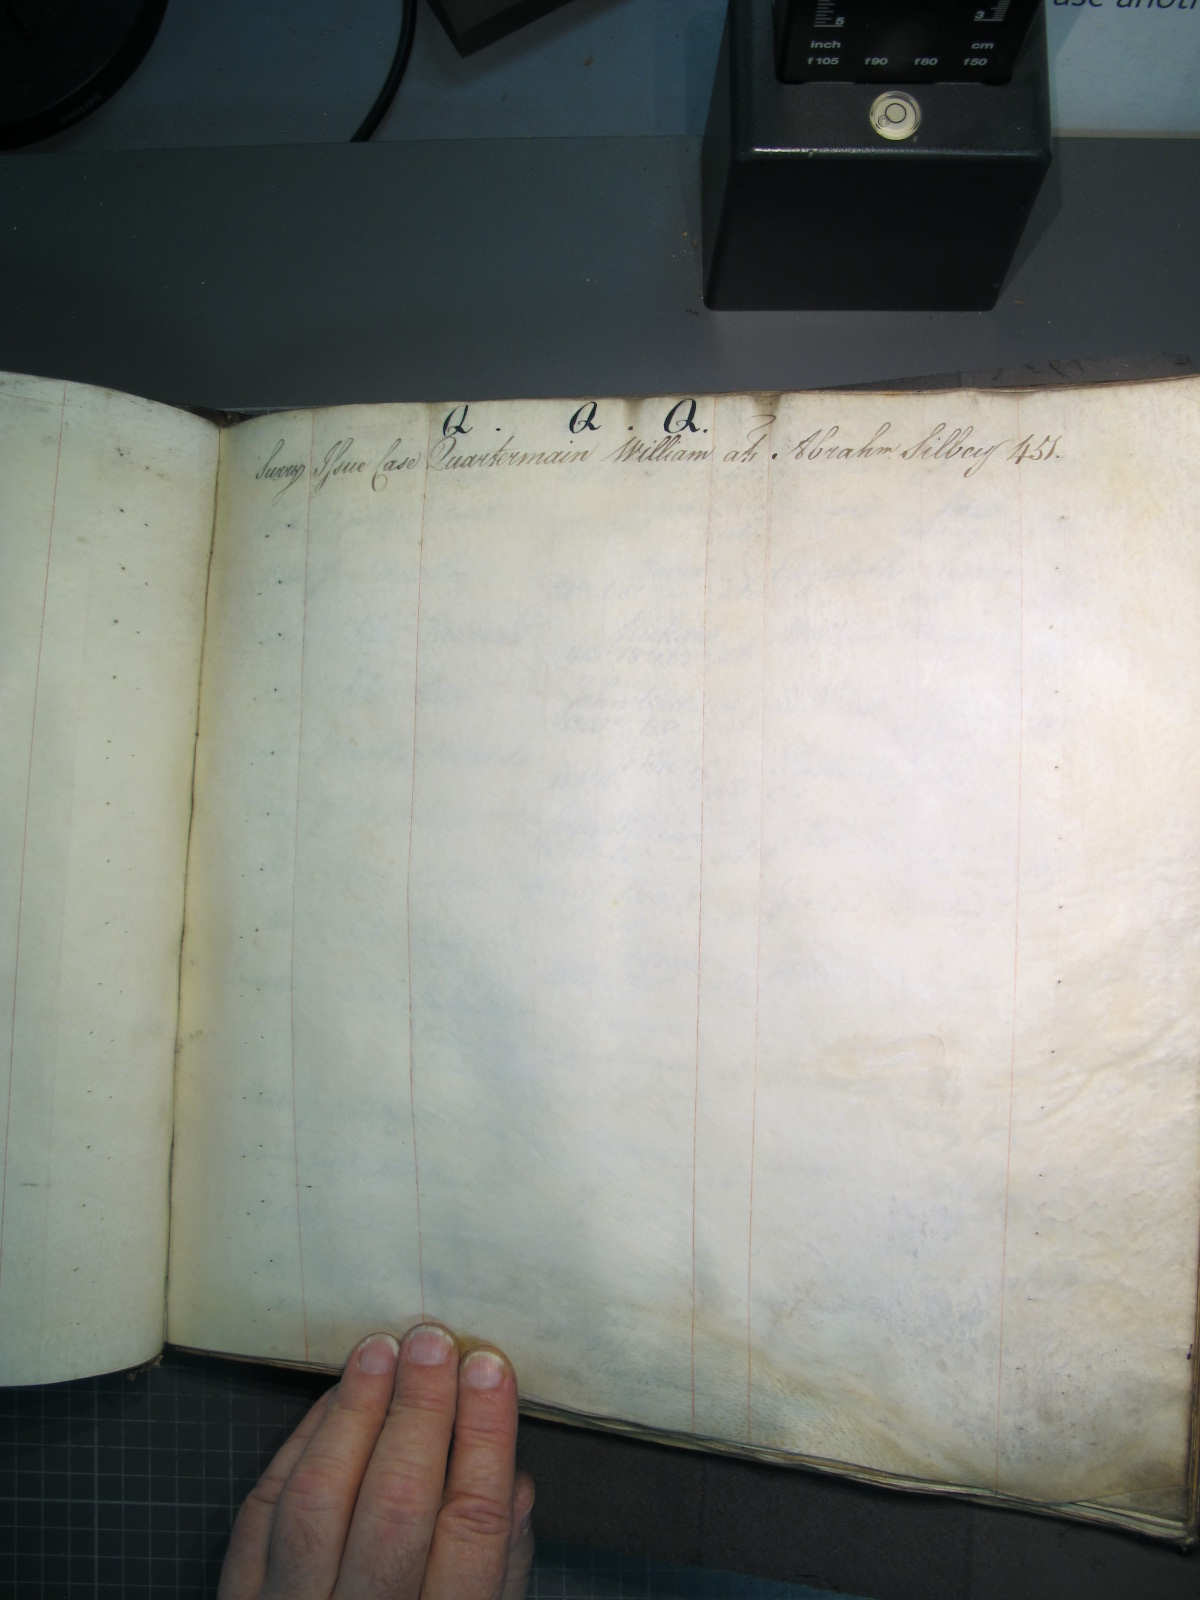 use anoth
5 3
inch cm
f105 f90 f80 f50
PHILIPS
Q . Q . Q.
Surry Issue Case Quartermain William ats Abrahm Silbey 451.